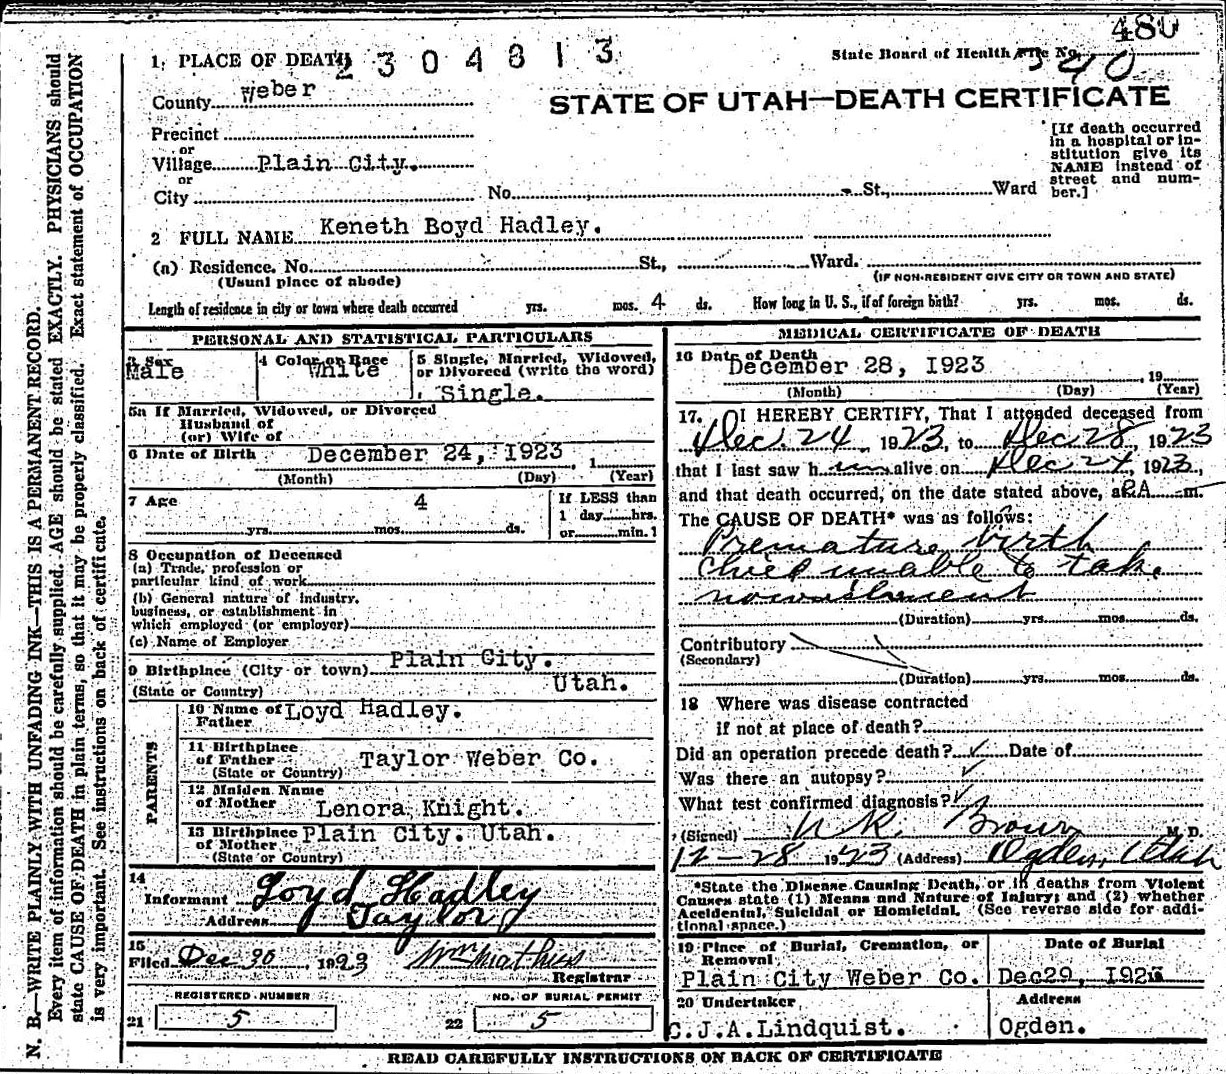 480
State Board of Health File No. 540
1. PLACE OF DEATH 2304813
County Weber
STATE OF UTAH—DEATH CERTIFICATE
Precinct
or
Village Plain City.
or
City No. St., Ward
[If death occurred
in a hospital or in-
stitution give its
NAME instead of
street and num-
ber.]
2 FULL NAME Keneth Boyd Hadley.
(a) Residence. No. St., Ward.
(Usual place of abode) (IF NON-RESIDENT GIVE CITY OR TOWN AND STATE)
Length of residence in city or town where death occurred yrs. mos. 4 ds. How long in U. S., if of foreign birth? yrs. mos. ds.
PERSONAL AND STATISTICAL PARTICULARS
3 Sex Male
4 Color or Race White
5 Single, Married, Widowed,
or Divorced (write the word)
Single.
5a If Married, Widowed, or Divorced
Husband of
(or) Wife of
6 Date of Birth December 24, 1923, 1
(Month) (Day) (Year)
7 Age 4
yrs. mos. ds.
If LESS than
1 day hrs.
or min. 1
8 Occupation of Deceased
(a) Trade, profession or
particular kind of work
(b) General nature of industry,
business, or establishment in
which employed (or employer)
(c) Name of Employer
9 Birthplace (City or town) Plain City.
(State or Country) Utah.
PARENTS
10 Name of Father Loyd Hadley.
11 Birthplace
of Father Taylor Weber Co.
(State or Country)
12 Maiden Name
of Mother Lenora Knight.
13 Birthplace
of Mother Plain City. Utah.
(State or Country)
14
Informant Loyd Hadley
Address Taylor
15
Filed Dec 30, 1923 Wm
Registrar
REGISTERED NUMBER NO. OF BURIAL PERMIT
21 5 22 5
MEDICAL CERTIFICATE OF DEATH
16 Date of Death
December 28, 1923 , 19
(Month) (Day) (Year)
17. I HEREBY CERTIFY, That I attended deceased from
Dec. 24, 1923, to Dec 28, 1923
that I last saw h im alive on Dec 24, 1923,
and that death occurred, on the date stated above, at m.
The CAUSE OF DEATH* was as follows:
Premature birth
unable to take
nourishment
(Duration) yrs. mos. ds.
Contributory
(Secondary)
(Duration) yrs. mos. ds.
18 Where was disease contracted
if not at place of death?
Did an operation precede death? ✓ Date of
Was there an autopsy? ✓
What test confirmed diagnosis? ✓
(Signed) Brown M. D.
12-28 1923 (Address) Ogden, Utah
*State the Disease Causing Death, or in deaths from Violent
Causes state (1) Means and Nature of Injury; and (2) whether
Accidental, Suicidal or Homicidal. (See reverse side for addi-
tional space.)
19 Place of Burial, Cremation, or
Removal
Plain City Weber Co.
Date of Burial
Dec29, 1923
20 Undertaker
C.J.A.Lindquist.
Address
Ogden.
READ CAREFULLY INSTRUCTIONS ON BACK OF CERTIFICATE
N. B.—WRITE PLAINLY WITH UNFADING INK—THIS IS A PERMANENT RECORD.
Every item of information should be carefully supplied. AGE should be stated EXACTLY. PHYSICIANS should
state CAUSE OF DEATH in plain terms, so that it may be properly classified. Exact statement of OCCUPATION
is very important. See instructions on back of certificate.